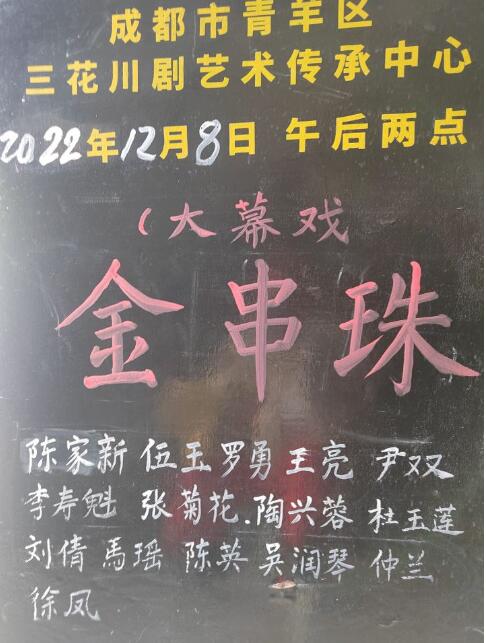 成都市青羊区
三花川剧艺术传承中心
2022年12月8日 午后两点
(大幕戏
金串珠
陈家新 伍玉 罗勇 王亮 尹双
李寿魁 张菊花.陶兴蓉 杜玉莲
刘倩 馬瑶 陈英 吴润琴 仲兰
徐凤